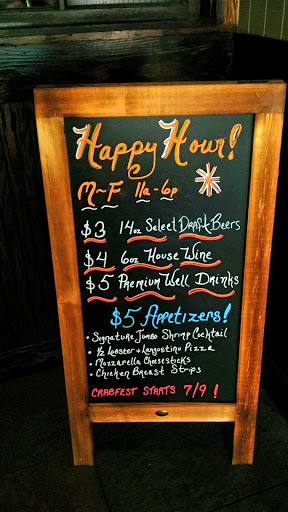 Happy Hour!
M-F 11a-6p
$3 14oz Select Draft Beers
$4 6oz House Wine
$5 Premium Well Drinks
$5 Appetizers!
• Signature Jumbo Shrimp Cocktail
• 1/2 Lobster + Langostino Pizza
• Mozzarella Cheesesticks
• Chicken Breast Strips
CRABFEST STARTS 7/9!